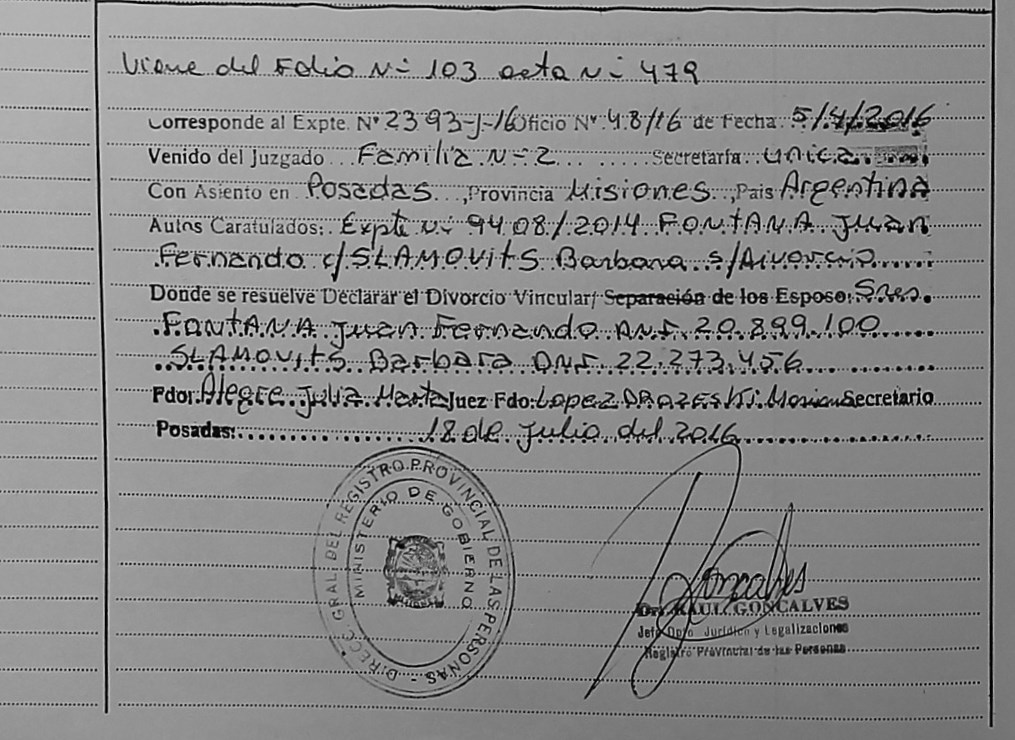 Viene del Folio N- 103 acta N- 479
Corresponde al Expte. Nº 2393-J-16 Oficio Nº 48/16 de Fecha 5/4/2016
Venido del Juzgado Familia N-2 Secretaría unica
Con Asiento en Posadas, Provincia Misiones, Pais Argentina
Autos Caratulados: Expte N- 9408/2014 FONTANA Juan
Fernando c/SLAMOVITS Barbara s/Divorcio
Donde se resuelve Declarar el Divorcio Vincular/ Separación de los Esposo: Sres.
FONTANA Juan Fernando DNI 20.899.100
SLAMOVITS Barbara DNI 22.273.456
Fdor. Alegre Julia Marta Juez Fdo: Lopez Secretario
Posadas: 18 de Julio del 2016
DIRECC. GRAL. DEL REGISTRO PROVINCIAL DE LAS PERSONAS
MINISTERIO DE GOBIERNO
Goncalves
Dr. RAUL GONCALVES
Jefe Dpto. Jurídico y Legalizaciones
Registro Provincial de las Personas